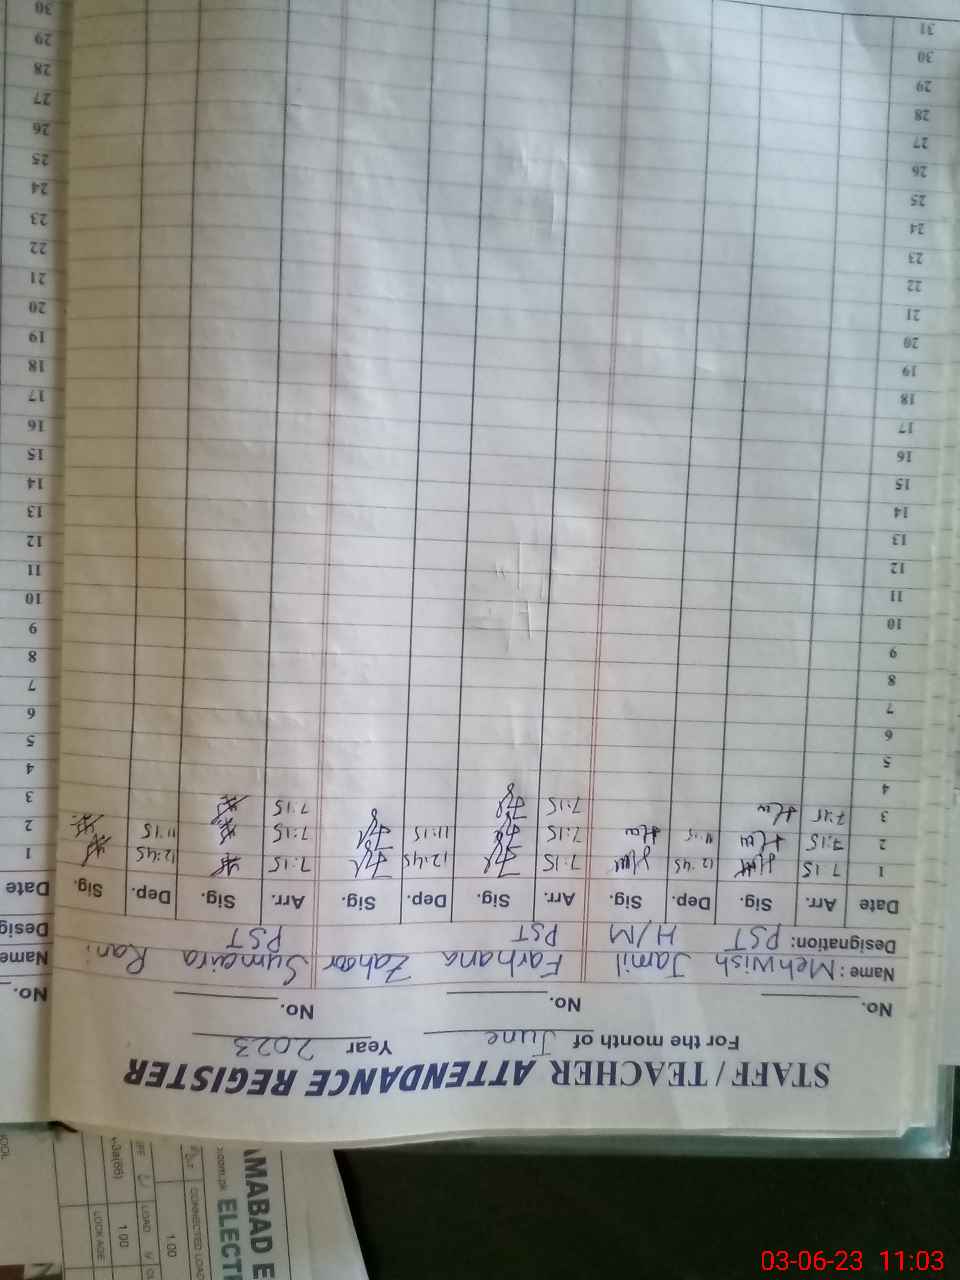 STAFF / TEACHER ATTENDANCE REGISTER
For the month of June Year 2023
No. No. No.
Name: Mehwish Jamil Farhana Zahoor Sumaira Rani
Designation: PST H/M PST PST
Date Arr. Sig. Dep. Sig. Arr. Sig. Dep. Sig. Arr. Sig. Dep. Sig.
1 7:15 12:45 7:15 12:45 7:15 12:45
2 7:15 11:15 7:15 11:15 7:15 11:15
3 7:15 7:15 7:15
4
5
6
7
8
9
10
11
12
13
14
15
16
17
18
19
20
21
22
23
24
25
26
27
28
29
30
31
No.
Name
Desig
Date
1
2
3
4
5
6
7
8
9
10
11
12
13
14
15
16
17
18
19
20
21
22
23
24
25
26
27
28
29
30
AMABAD E
ELECT
.com.pk
CONNECTED LOAD
1.00
LOAD
LOCK AGE
1.00
03-06-23 11:03